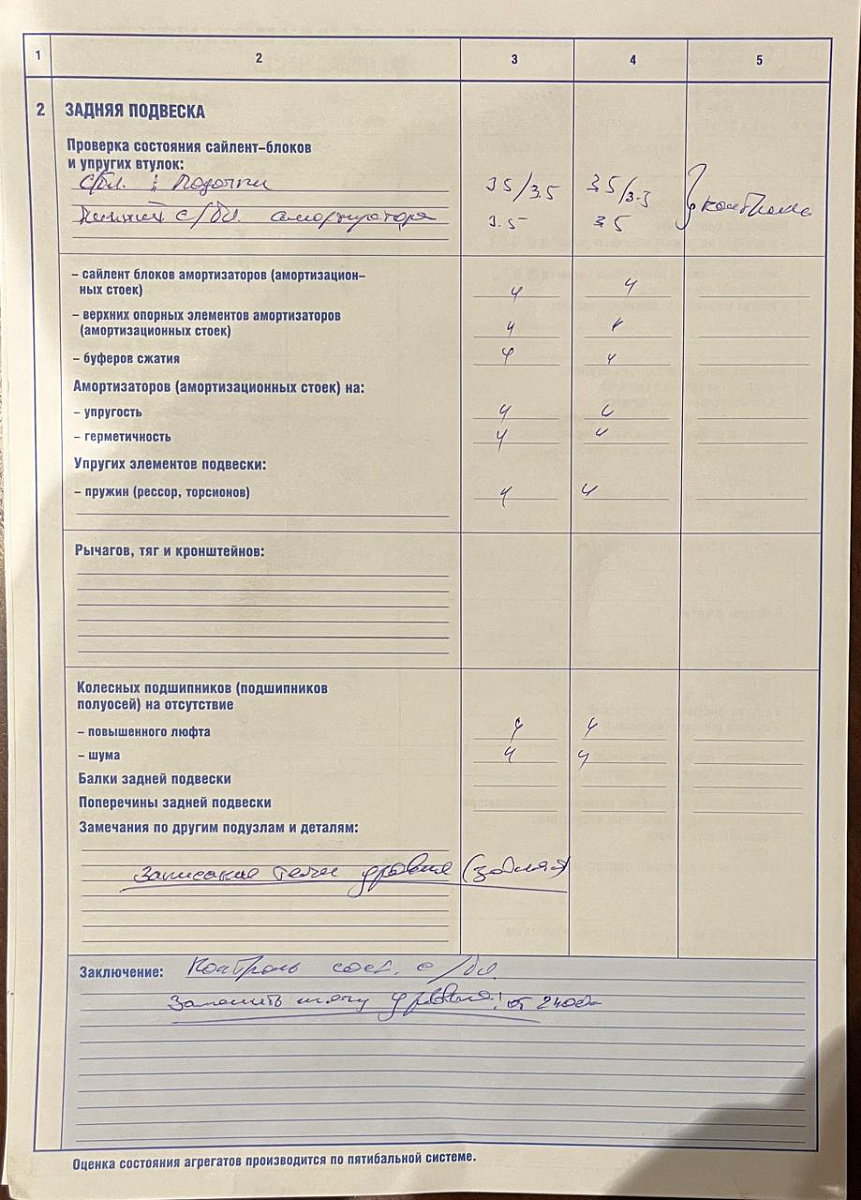 1 2 3 4 5
2 ЗАДНЯЯ ПОДВЕСКА
Проверка состояния сайлент-блоков
и упругих втулок:
с/бл. : 35/3.5 35/3.5
с/бл. амортизатора 3.5 35 контроль
– сайлент блоков амортизаторов (амортизацион-
ных стоек) 4 4
– верхних опорных элементов амортизаторов
(амортизационных стоек) 4 4
– буферов сжатия 4 4
Амортизаторов (амортизационных стоек) на:
– упругость 4 4
– герметичность 4 4
Упругих элементов подвески:
– пружин (рессор, торсионов) 4 4
Рычагов, тяг и кронштейнов:
Колесных подшипников (подшипников
полуосей) на отсутствие
– повышенного люфта 4 4
– шума 4 4
Балки задней подвески
Поперечины задней подвески
Замечания по другим подузлам и деталям:
уровня (задняя)
Заключение: Контроль сост. с/бл.
Заменить тягу уровня! от 2400
Оценка состояния агрегатов производится по пятибальной системе.